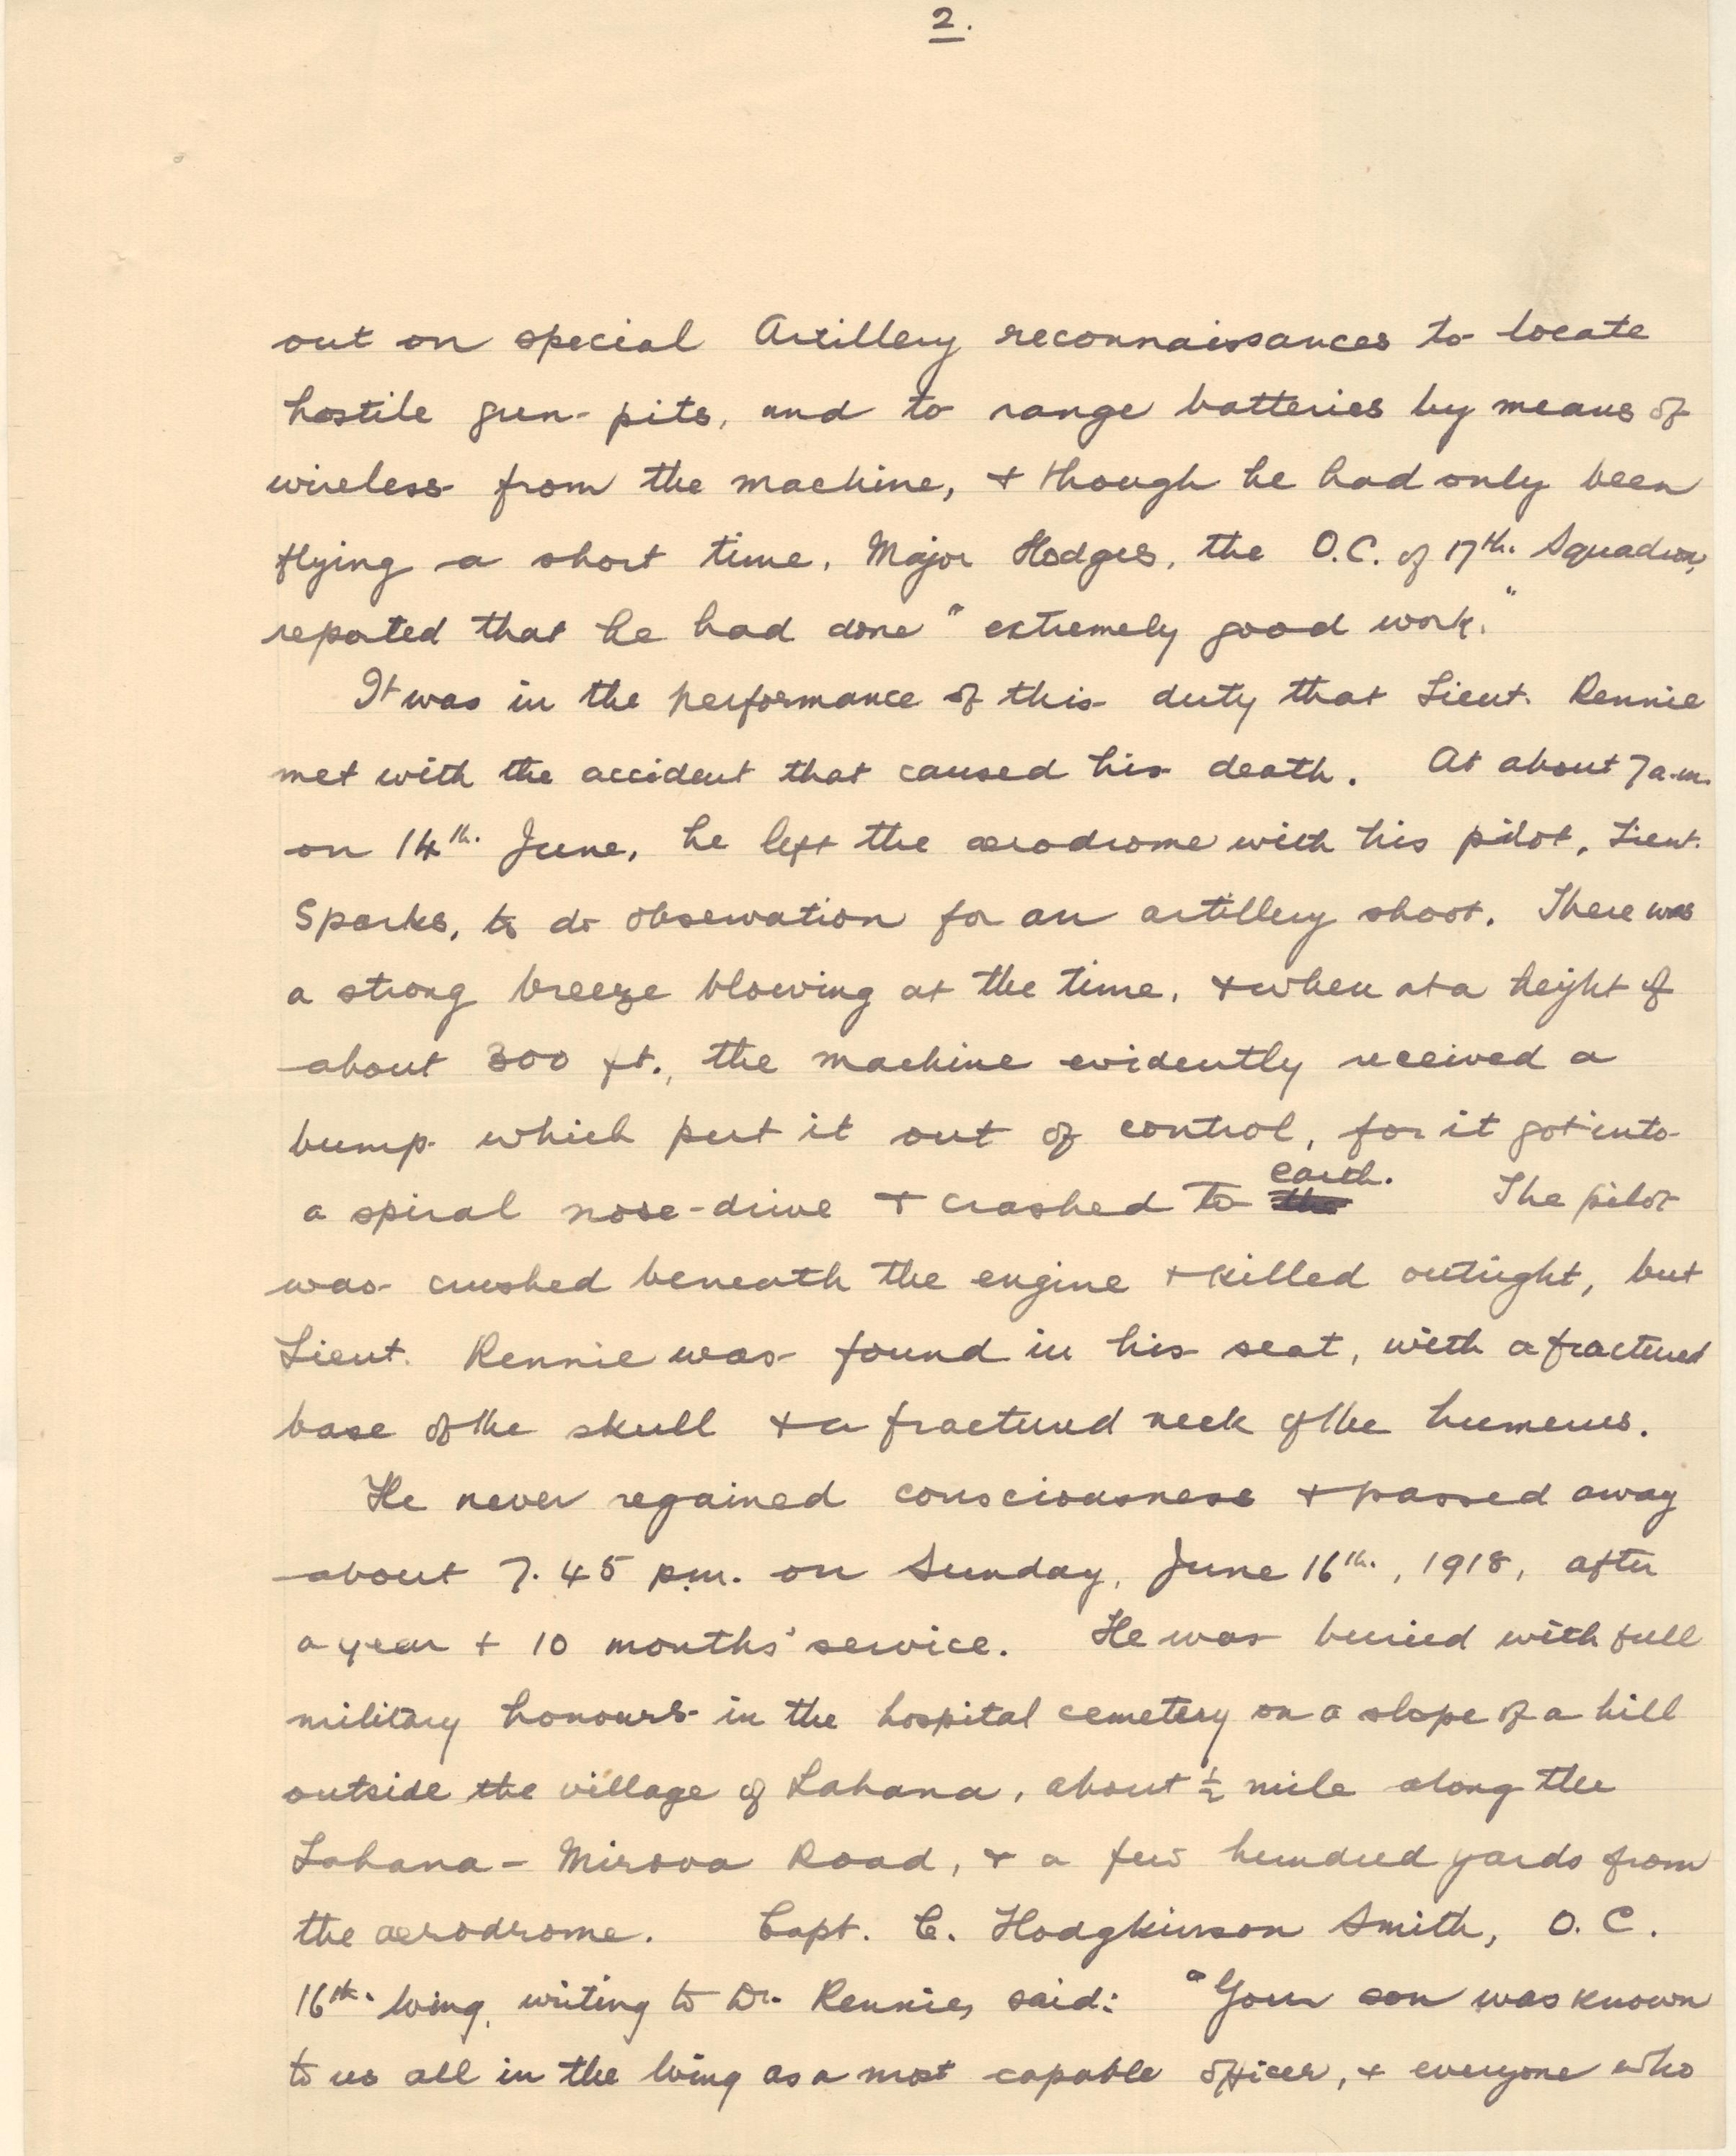 2.
out on special Artillery reconnaissances to locate
hostile gun-pits, and to range batteries by means of
wireless from the machine, + though he had only been
flying a short time, Major Hodges, the O.C. of 17th. Squadron,
reported that he had done "extremely good work."
It was in the performance of this duty that Lieut. Rennie
met with the accident that caused his death. At about 7 a.m.
on 14th. June, he left the aerodrome with his pilot, Lieut.
Sparks, to do observation for an artillery shoot. There was
a strong breeze blowing at the time, + when at a height of
about 300 ft., the machine evidently received a
bump which put it out of control, for it got into
a spiral nose-drive + crashed to the earth. The pilot
was crushed beneath the engine + killed outright, but
Lieut. Rennie was found in his seat, with a fractured
base of the skull + a fractured neck of the humerus.
He never regained consciousness + passed away
about 7.45 p.m. on Sunday, June 16th., 1918, after
a year + 10 months' service. He was buried with full
military honours in the hospital cemetery on a slope of a hill
outside the village of Lahana, about ½ mile along the
Lahana - Mirova Road, + a few hundred yards from
the aerodrome. Capt. C. Hodgkinson Smith, O.C.
16th. Wing, writing to Dr. Rennie, said: "Your son was known
to us all in the Wing as a most capable officer, + everyone who